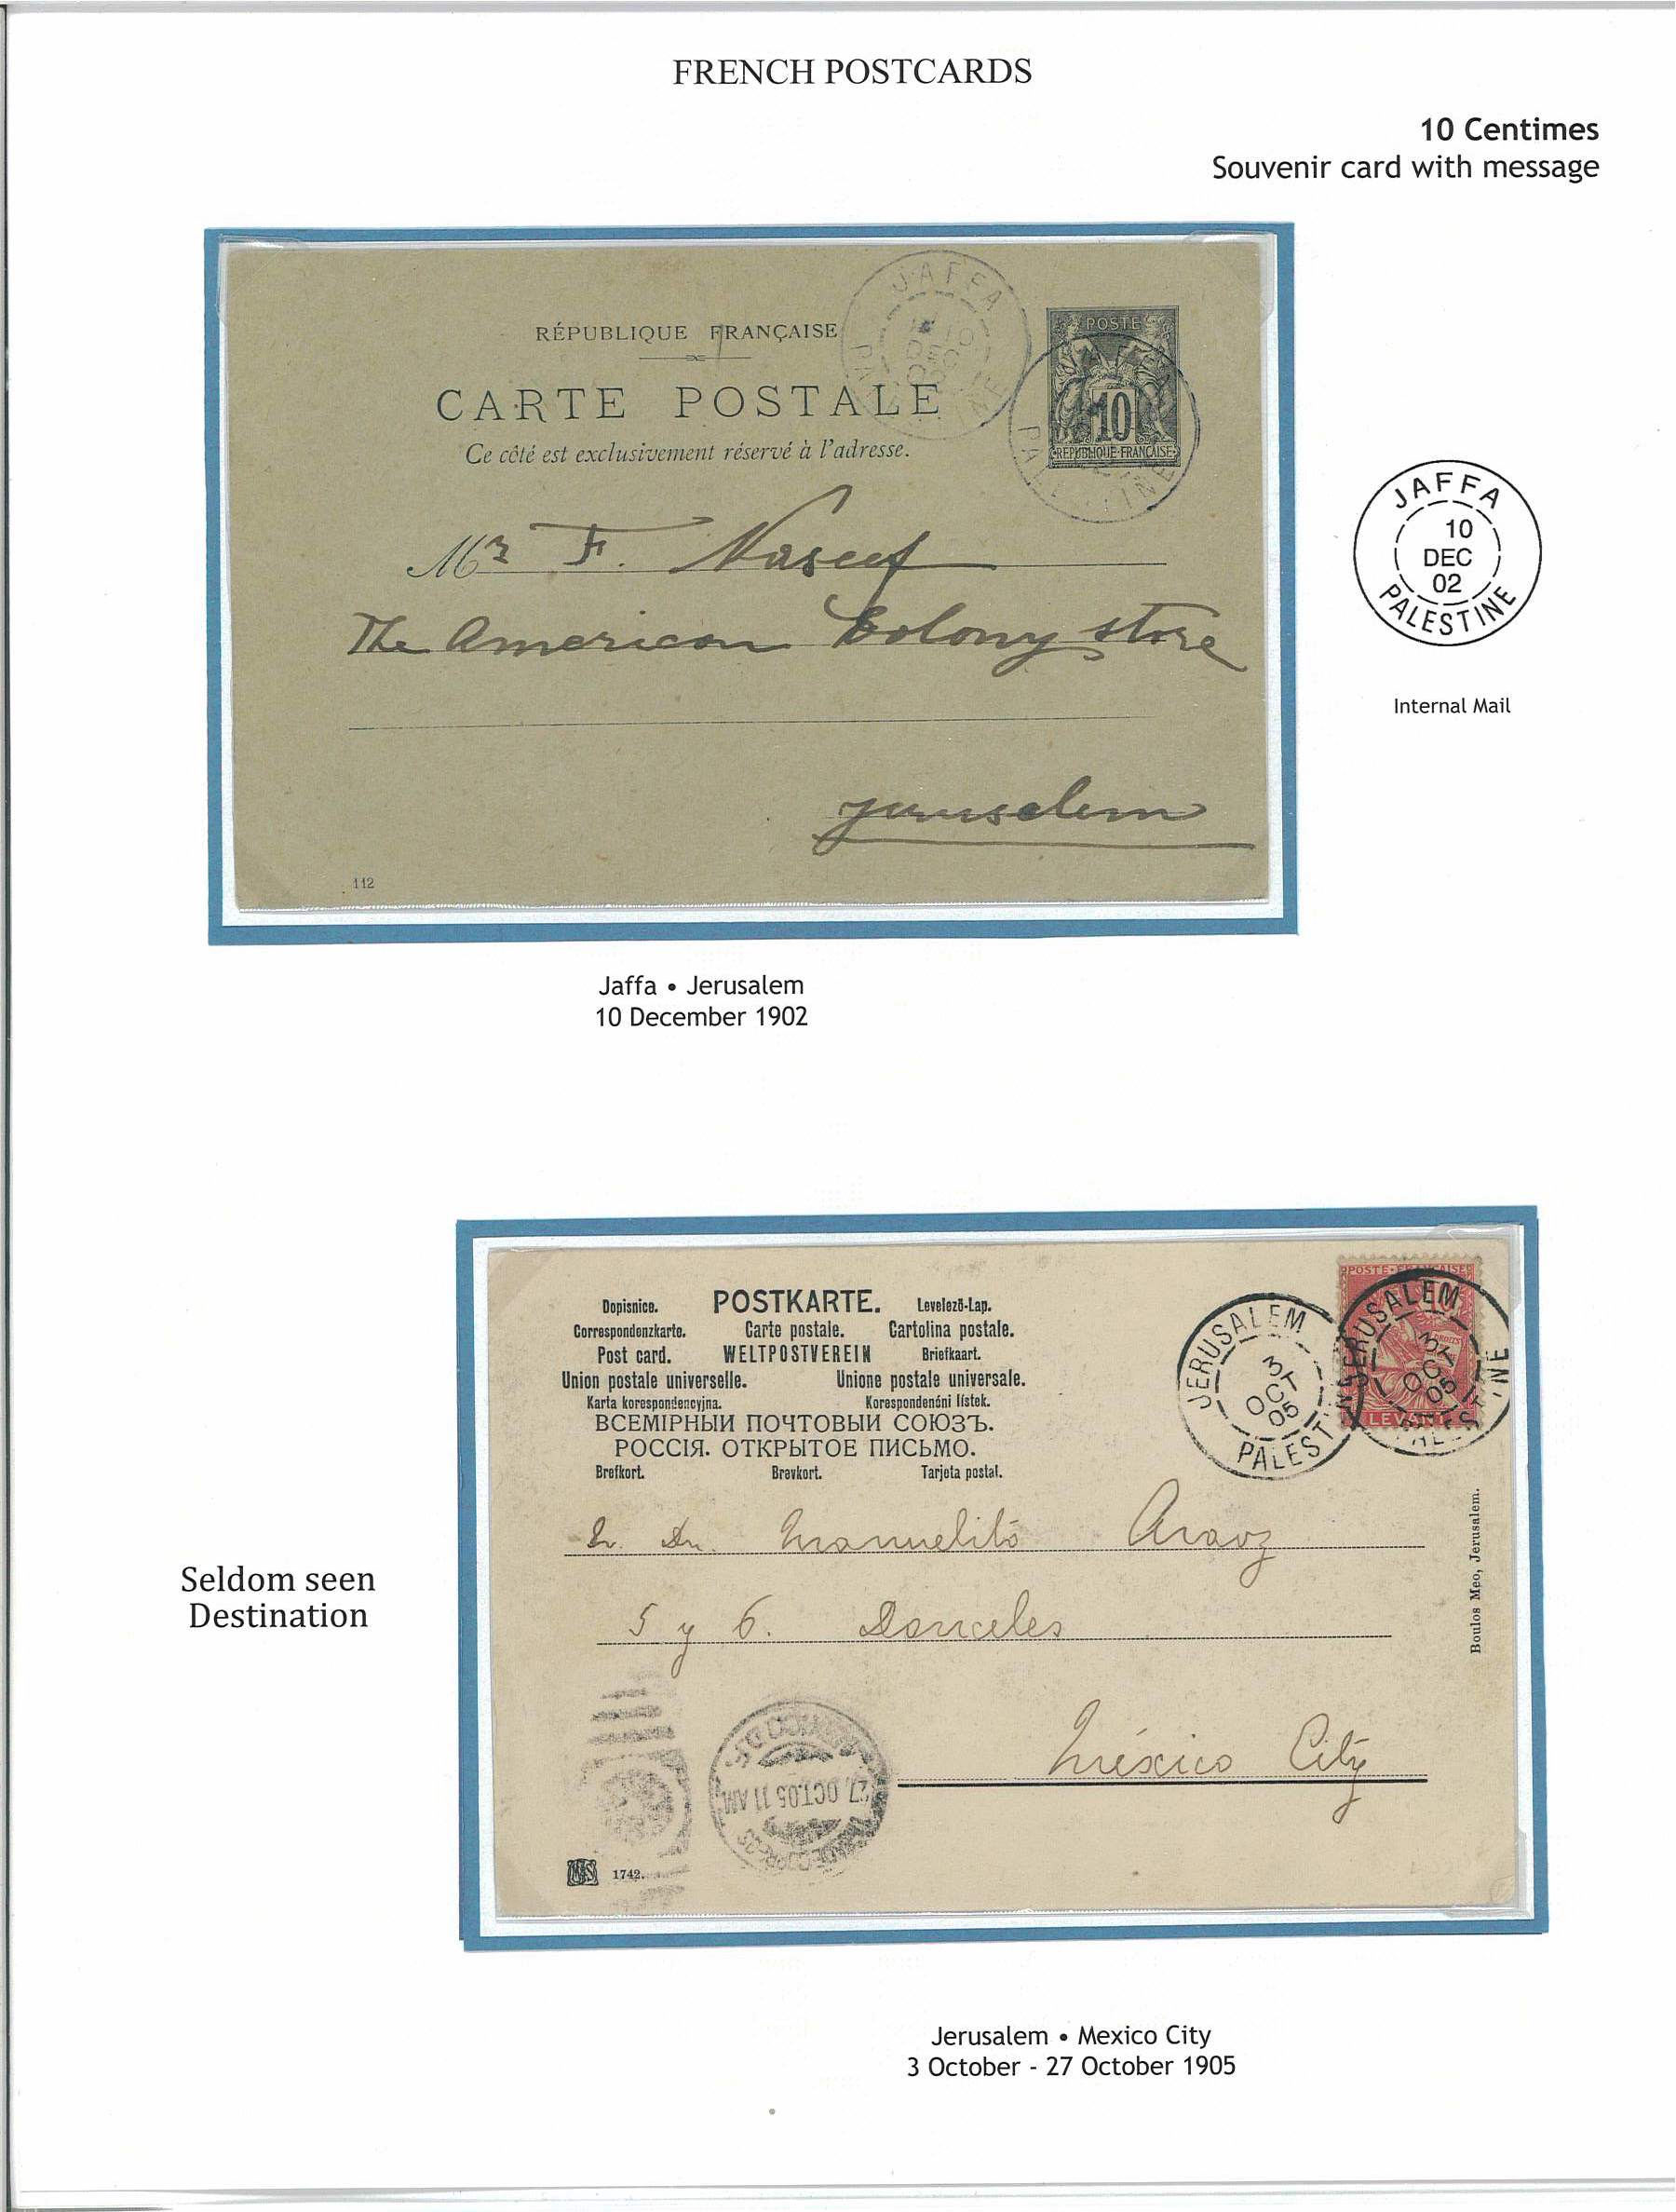 FRENCH POSTCARDS
10 Centimes
Souvenir card with message
JAFFA
RÉPUBLIQUE FRANÇAISE
CARTE POSTALE
Ce côté est exclusivement réservé à l'adresse.
POSTE
10
REPUBLIQUE FRANÇAISE
Mr F. Naseef
The American Colony store
Jerusalem
112
JAFFA
10
DEC
02
PALESTINE
Internal Mail
Jaffa • Jerusalem
10 December 1902
Dopisnice. POSTKARTE. Levelező-Lap.
Correspondenzkarte. Carte postale. Cartolina postale.
Post card. WELTPOSTVEREIN Briefkaart.
Union postale universelle. Unione postale universale.
Karta korespondencyjna. Korespondenční lístek.
ВСЕМІРНЫЙ ПОЧТОВЫЙ СОЮЗЪ.
РОССІЯ. ОТКРЫТОЕ ПИСЬМО.
Brefkort. Brevkort. Tarjeta postal.
JERUSALEM
3
OCT
05
PALESTINE
POSTE FRANÇAISE
LEVANT
JERUSALEM
3
OCT
05
PALESTINE
Sr. Dn. Manuelito Araoz
5 y 6. Donceles
México City
27. OCT.05 11 AM.
1742.
Boulos Meo, Jerusalem.
Seldom seen
Destination
Jerusalem • Mexico City
3 October - 27 October 1905